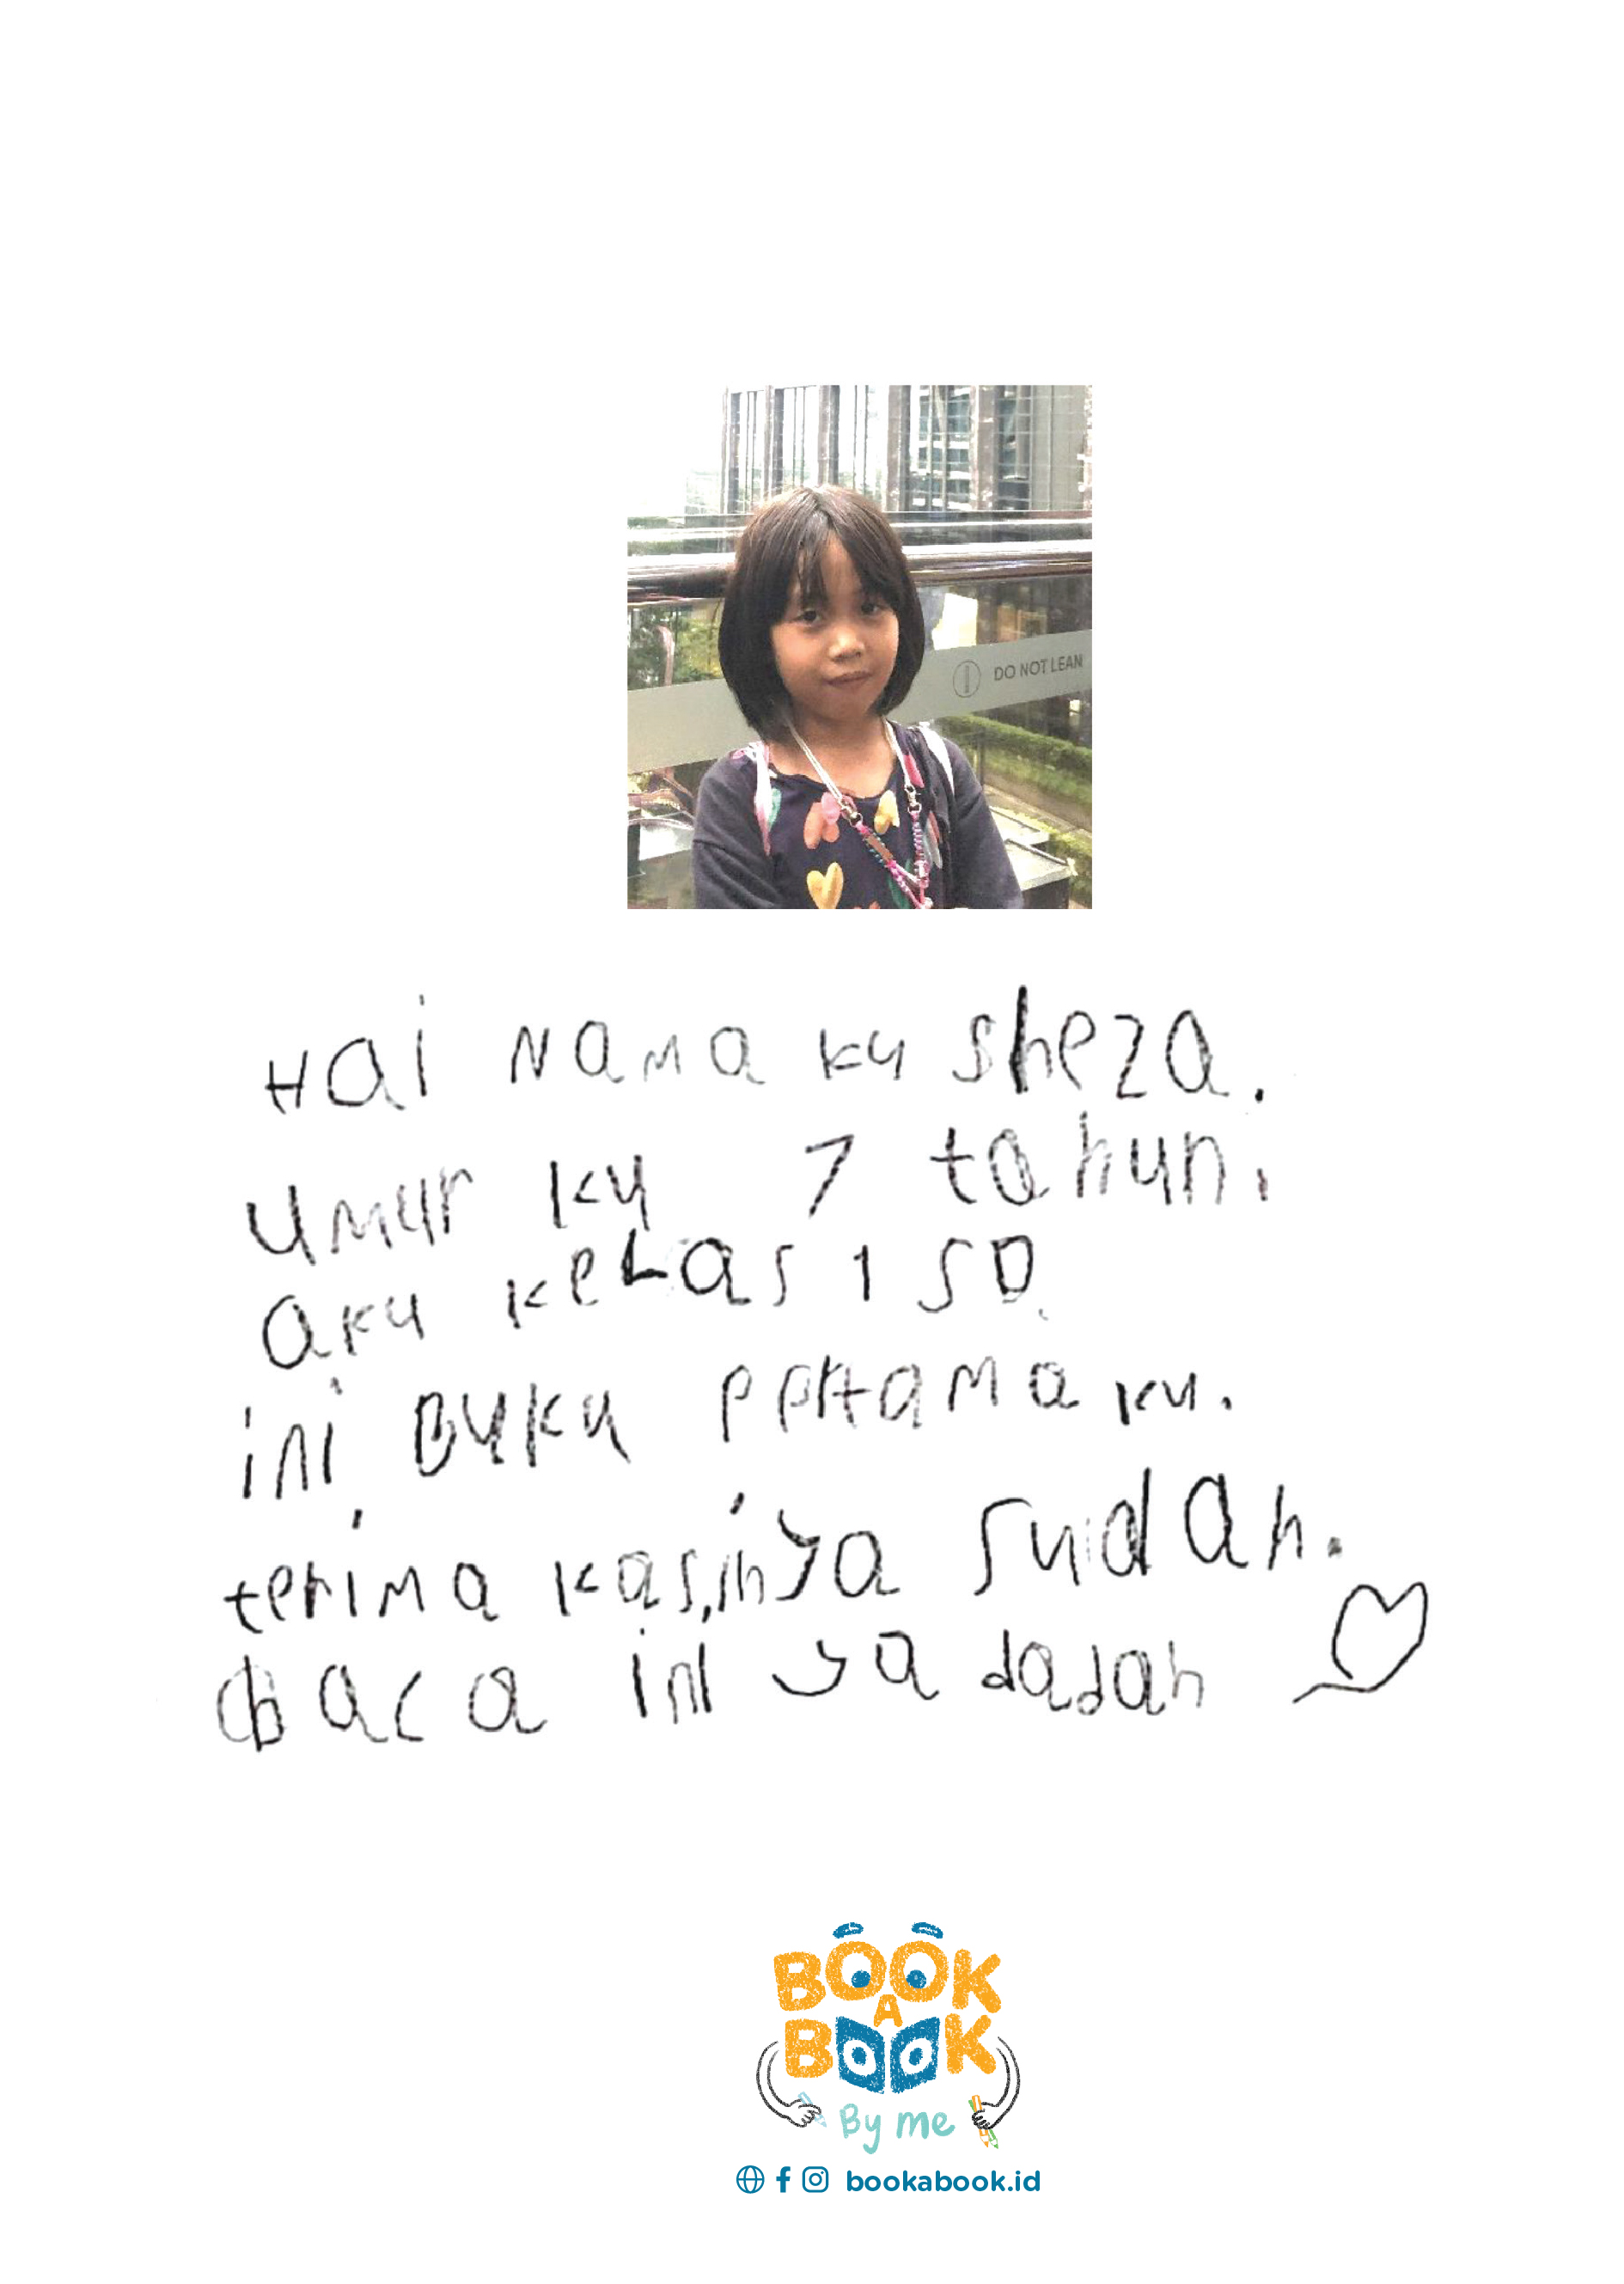 DO NOT LEAN
Hai Nama ku sheza.
umur ku 7 tahun.
aku keLas 1 SD.
ini Buku pertama ku.
terima kasihya sudah.
Baca ini ya dadah
BOOK
A
BOOK
By me
bookabook.id